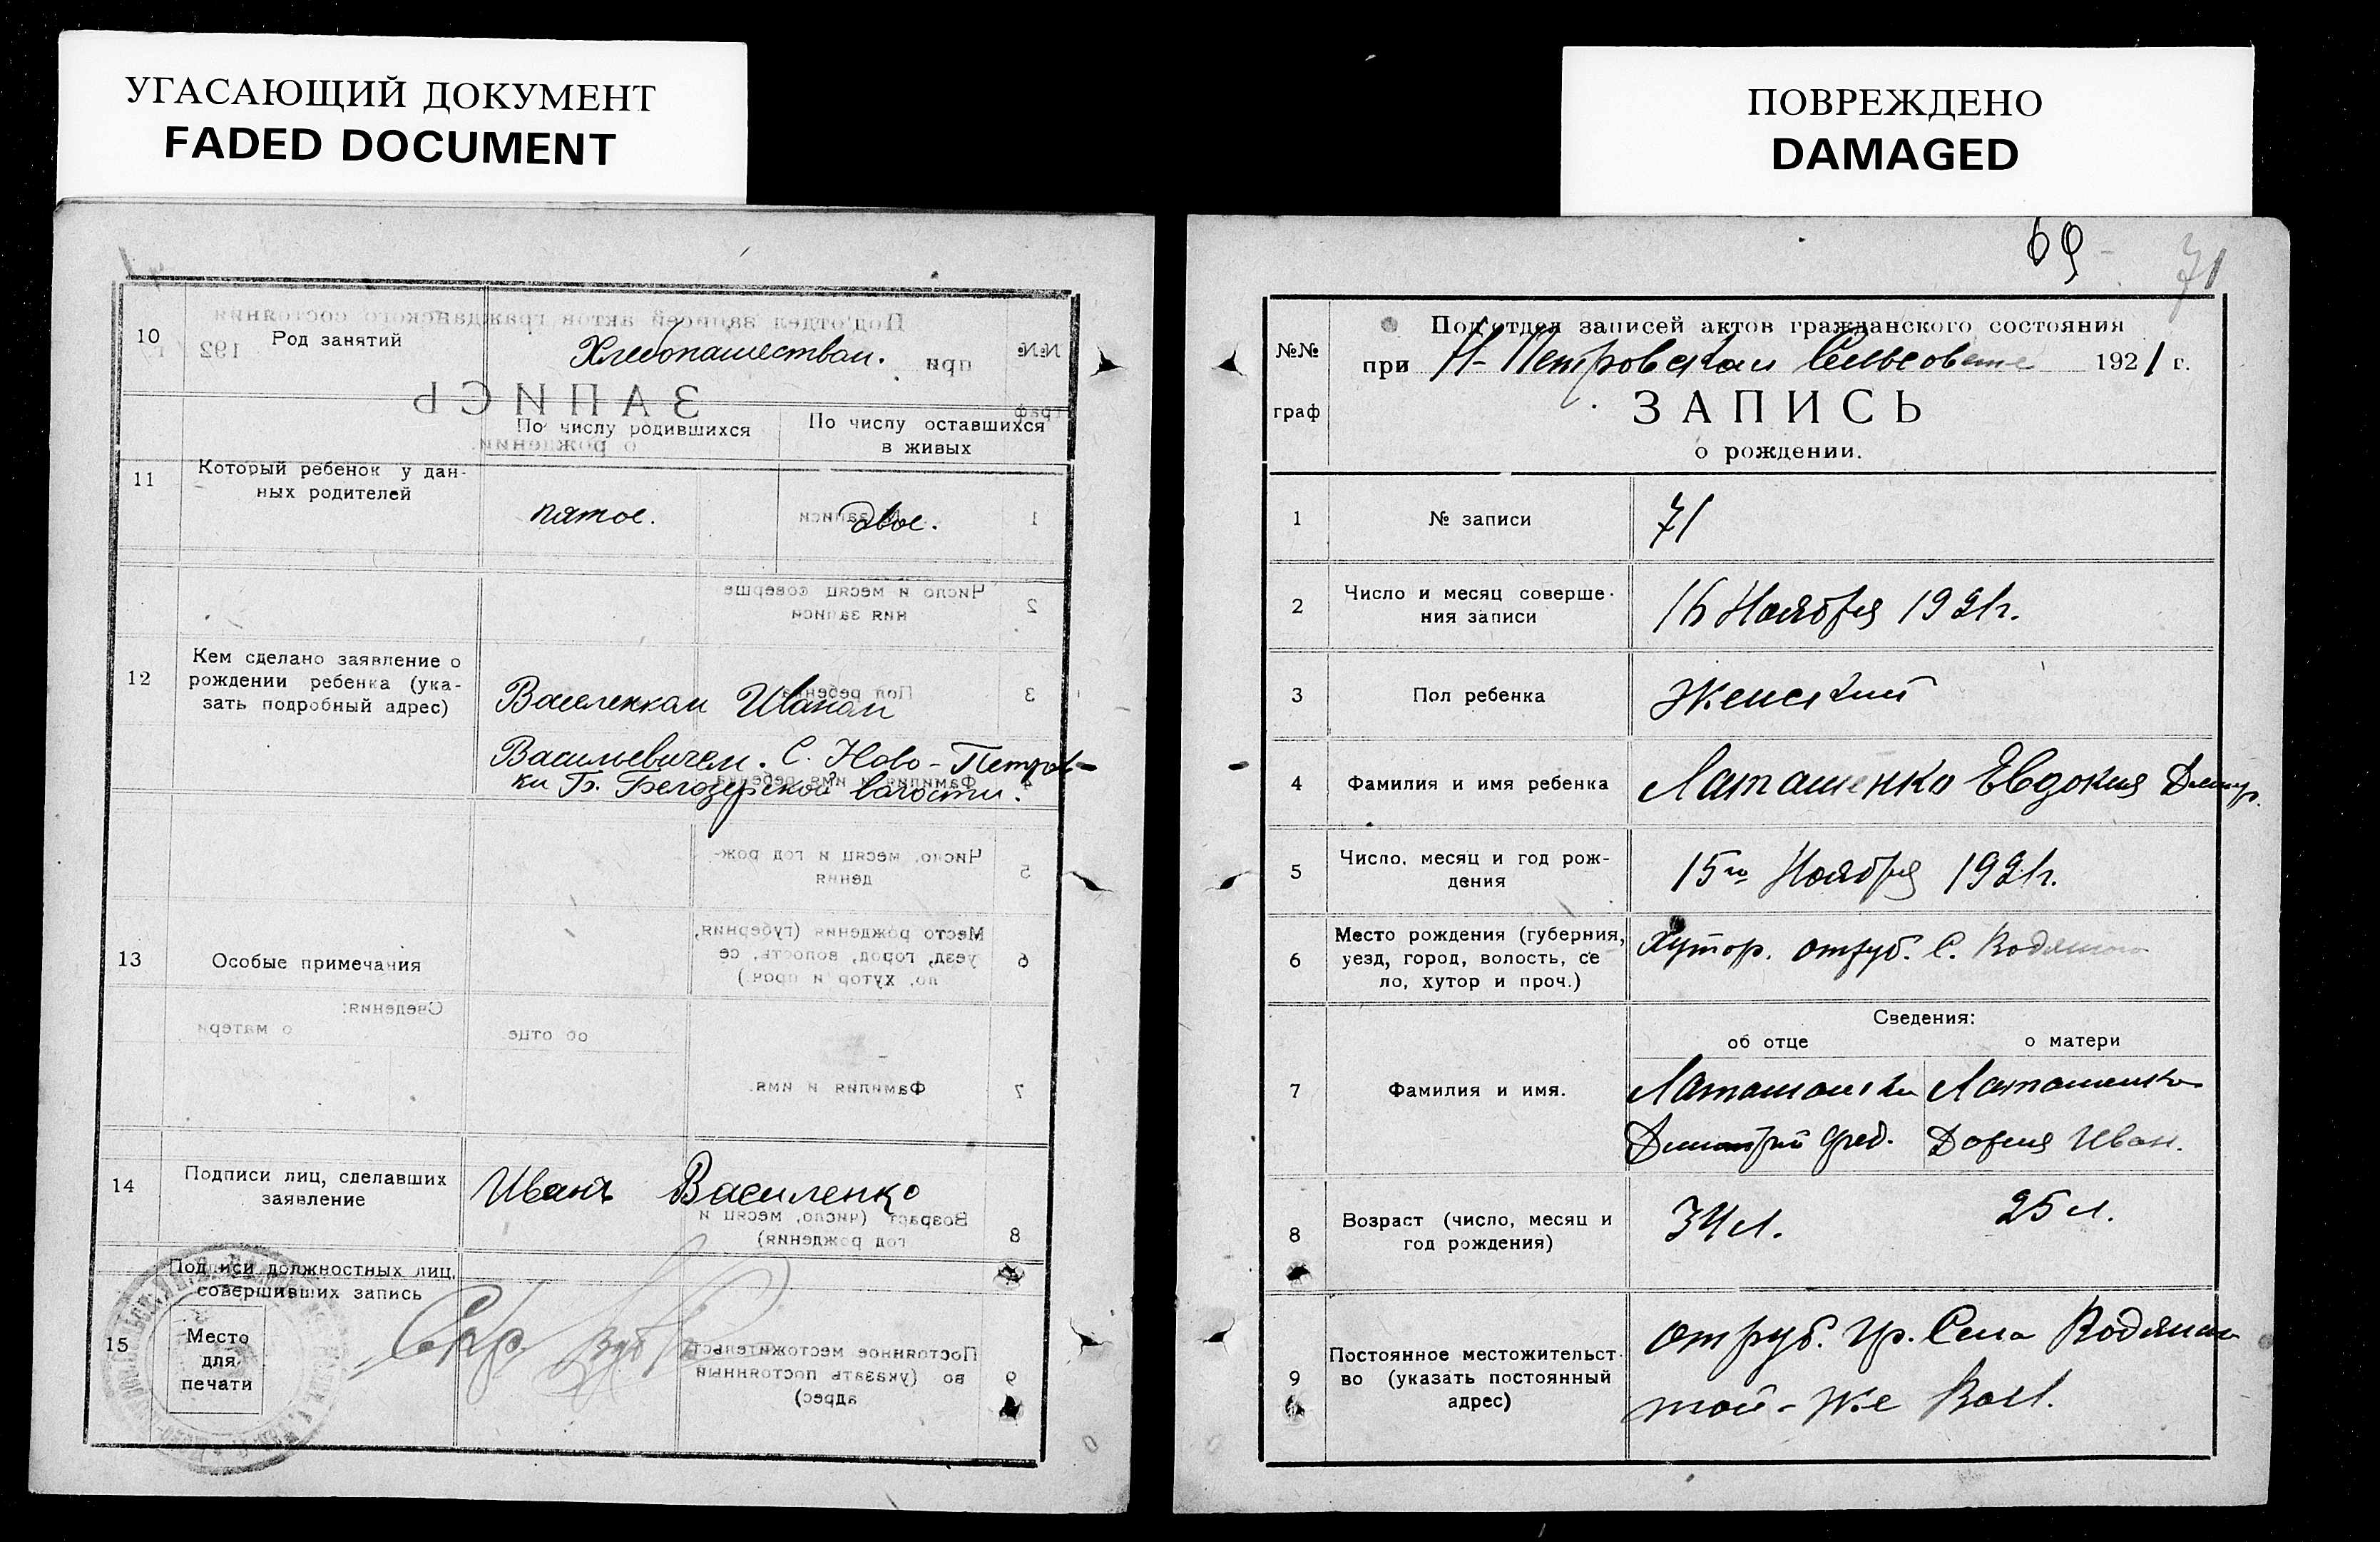 УГАСАЮЩИЙ ДОКУМЕНТ
FADED DOCUMENT
10
Род занятий
Хлебопашеством.
11
Который ребенок у дан-
ных родителей
По числу родившихся
По числу оставшихся
в живых
пятое.
двое.
12
Кем сделано заявление о
рождении ребенка (ука-
зать подробный адрес)
Василенком Иваном
Васильевичем. С. Ново-Петров-
ки Б. Белозерской волости.
13
Особые примечания
14
Подписи лиц, сделавших
заявление
Иванъ Василенко
15
Подписи должностных лиц,
совершивших запись
Место
для
печати
ПОВРЕЖДЕНО
DAMAGED
69
71
№№
граф
Под'отдел записей актов гражданского состояния
при Н-Петровском Сельсовете 1921 г.
ЗАПИСЬ
о рождении.
1
№ записи
71
2
Число и месяц соверше-
ния записи
16 Ноября 1921г.
3
Пол ребенка
Женский
4
Фамилия и имя ребенка
Латашенко Евдокия Дмитр.
5
Число, месяц и год рож-
дения
15го Ноября 1921г.
6
Место рождения (губерния,
уезд, город, волость, се
ло, хутор и проч.)
Хутор. отруб. С. Водяного
Сведения:
об отце
о матери
7
Фамилия и имя.
Латашенко
Дмитрий
Латашенко
Дария Иван.
8
Возраст (число, месяц и
год рождения)
34 л.
25 л.
9
Постоянное местожительст-
во (указать постоянный
адрес)
отруб. гр. Села Водяного
той-же Вол.